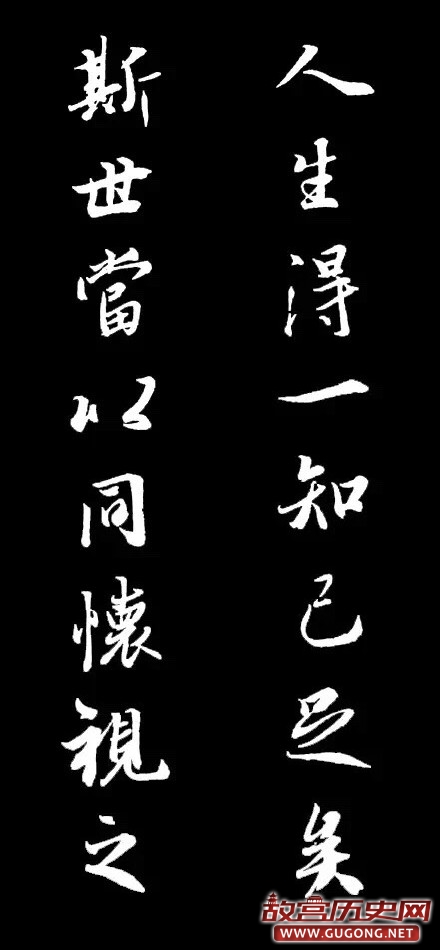 人生得一知己足矣
斯世當以同懷視之
故宫历史网
WWW.GUGONG.NET